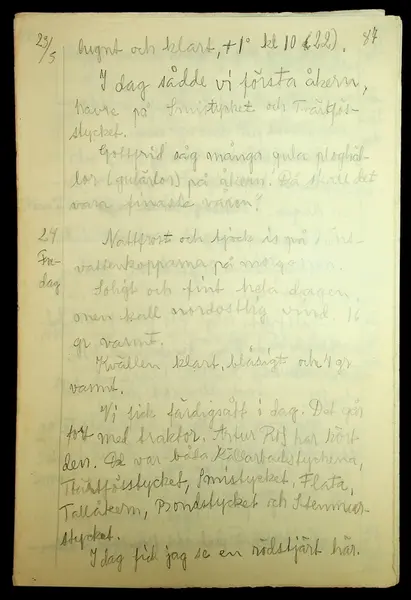 23/5 lugnt och klart, +1° kl 10 (22). 87
I dag sådde vi första åkern,
havre på Smistycket och
stycket.
Gottfrid såg många gula
(gulärlor) på åkern. Då skall det
vara finaste våren!
24 Nattfrost och tjock is på
Fre- vattenkopparna på morgonen.
dag Soligt och fint hela dagen,
men kall nordostlig vind. 16
gr varmt.
Kvällen klart, blåsigt och 4 gr
varmt.
Vi fick färdigsått i dag. Det går
fort med traktor. Artur har kört
den. Det var båda
Smistycket, Flata,
Tallåkern, Bondstycket och
stycket.
I dag fick jag se en rödstjärt här.